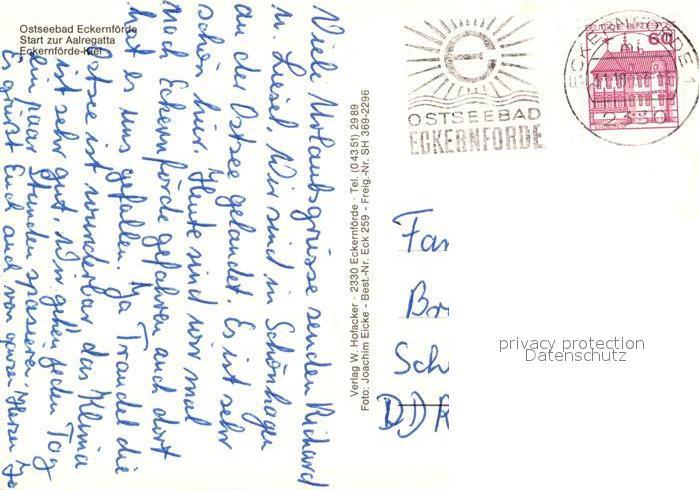 Ostseebad Eckernförde
Start zur Aalregatta
Eckernförde-Kiel
Viele Urlaubsgrüsse senden Richard
u. Liesel. Wir sind in Schönhagen
an der Ostsee gelandet. Es ist sehr
schön hier. Heute sind wir mal
nach Eckernförde gefahren auch dort
hat es uns gefallen. Ja Traudel die
Ostsee ist wunderbar das Klima
ist sehr gut. Wir gehen jeden Tag
ein paar Stunden spazieren.
Es grüßt Euch auch von ganzen Herzen
Verlag W. Hofacker · 2330 Eckernförde · Tel. (04351) 2989
Foto: Joachim Eicke - Best.-Nr. Eck 259 - Freig.-Nr. SH 369-2296
OSTSEEBAD
ECKERNFÖRDE
DEUTSCHE BUNDESPOST
60
ECKERNFÖRDE 1
2330
Fam
Br
Sch
DDR
privacy protection
Datenschutz